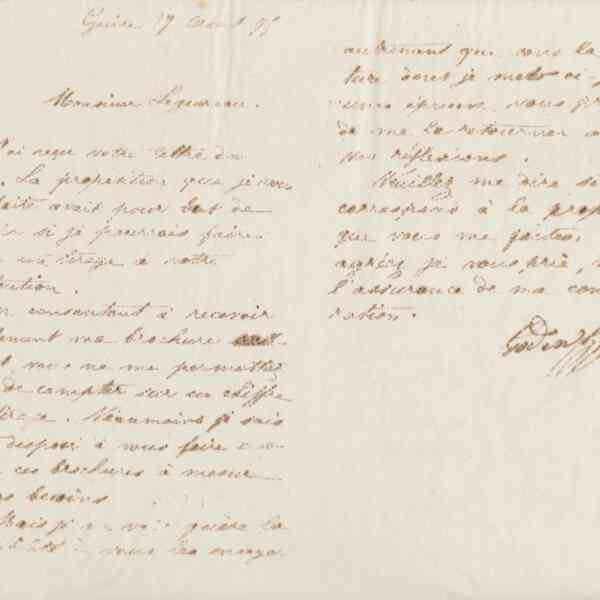 Guise 17 août 75
Monsieur
J'ai reçu votre lettre du
La proposition que je vous
faite avait pour but de
si je pourrais faire
un tirage à votre
intention.
En consentant à recevoir
seulement ma brochure
vous ne me permettez
de compter sur un chiffre
Néanmoins je suis
disposé à vous faire
ces brochures à mesure
besoins
Mais je ne vois guère la
à vous les
autrement que sous la
ture dont je mets ci-j
une épreuve, vous pr
de me la retourner a
vos réflexions.
Veuillez me dire si
correspons à la prop
que vous me faites,
agréez je vous prie,
l'assurance de ma con
ration.
Godin